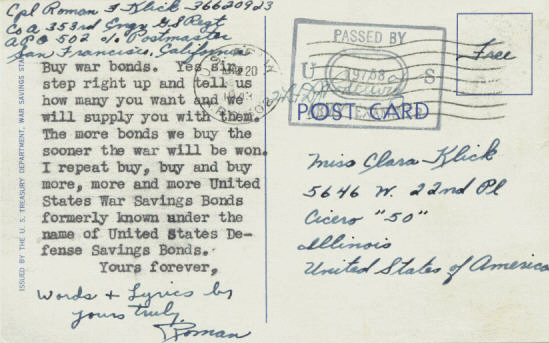 Cpl Roman F Klick 36620923
Co A 353rd Engr G S Regt
A P O 502 c/o Postmaster
San Francisco, California
Buy war bonds. Yes sir,
step right up and tell us
how many you want and we
will supply you with them.
The more bonds we buy the
sooner the war will be won.
I repeat buy, buy and buy
more, more and more United
States War Savings Bonds
formerly known under the
name of United States De-
fense Savings Bonds.
Yours forever,
Words & Lyrics by
yours truly.
Roman
ISSUED BY THE U. S. TREASURY DEPARTMENT, WAR SAVINGS
PASSED BY
U S
19758
POST CARD
Free
Miss Clara Klick
5646 W. 22nd Pl
Cicero "50"
Illinois
United States of America